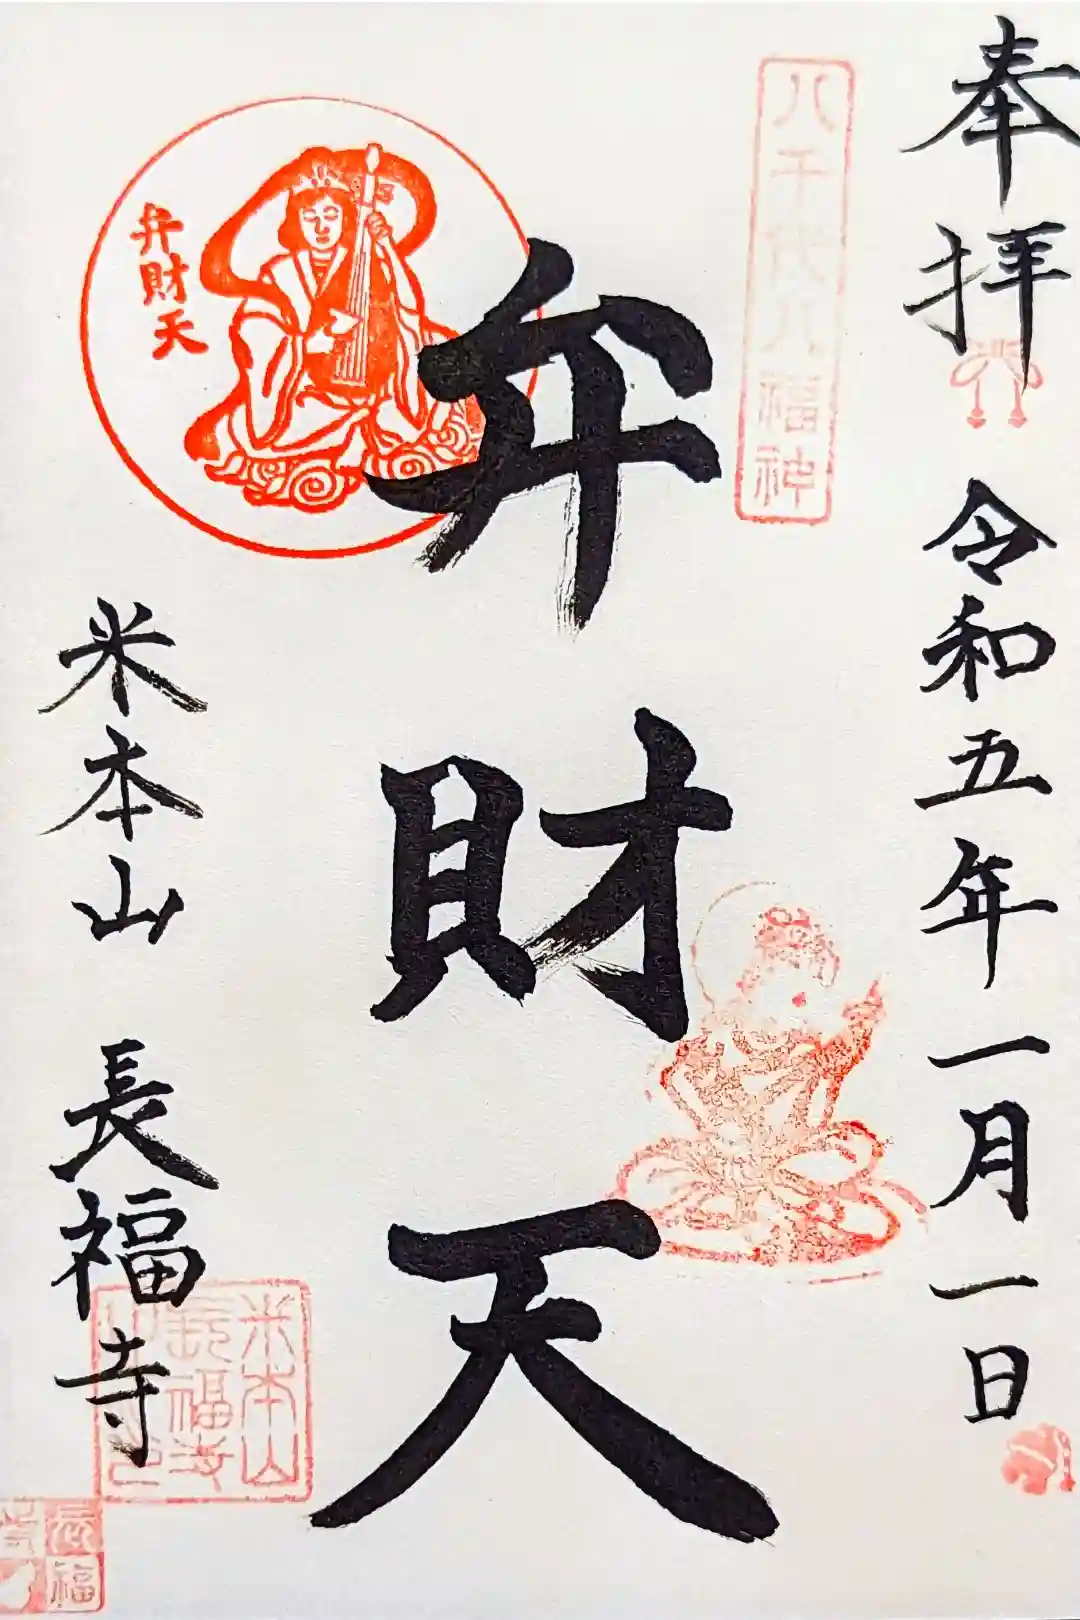 奉拝
令和五年一月一日
八千代八福神
弁財天
弁財天
米本山 長福寺
米本山
長福寺